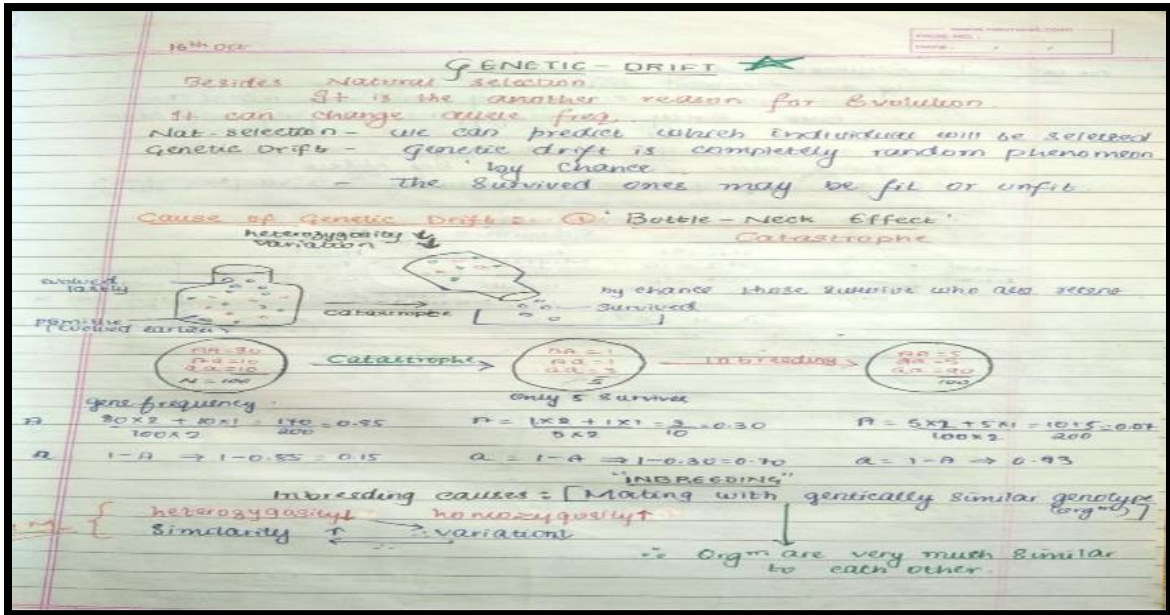 16th Oct
PAGE NO.:
DATE: / /
GENETIC - DRIFT
Besides Natural selection
It is the another reason for Evolution
It can change allele freq.
Nat. selection - we can predict which individual will be selected
Genetic Drift - Genetic drift is completely random phenomeon
by chance
- The survived ones may be fit or unfit
Cause of Genetic Drift = ① 'Bottle-Neck Effect'
heterozygosity ↓
variation ↓
Catastrophe
evolved lately
by chance those survive who are
survived
Catastrophe
(evolved earlier)
AA = 80
Aa = 10
aa = 10
N = 100
Catastrophe
AA = 1
Aa = 1
aa = 3
5
Inbreeding
AA = 5
Aa = 5
aa = 90
100
gene frequency
Only 5 survive
A 80×2 + 10×1 / 100×2 = 170/200 = 0.85
A = 1×2 + 1×1 / 5×2 = 3/10 = 0.30
A = 5×2 + 5×1 / 100×2 = 10+5/200 = 0.07
a 1-A ⇒ 1-0.85 = 0.15
a = 1-A ⇒ 1-0.30 = 0.70
a = 1-A → 0.93
"INBREEDING"
Inbreeding causes = [Mating with gentically similar genotype
(orgm)]
heterozygosity↓ homozygosity↑
Similarity ↑ ∴ variation↓
∴ Orgm are very much similar
to each other.